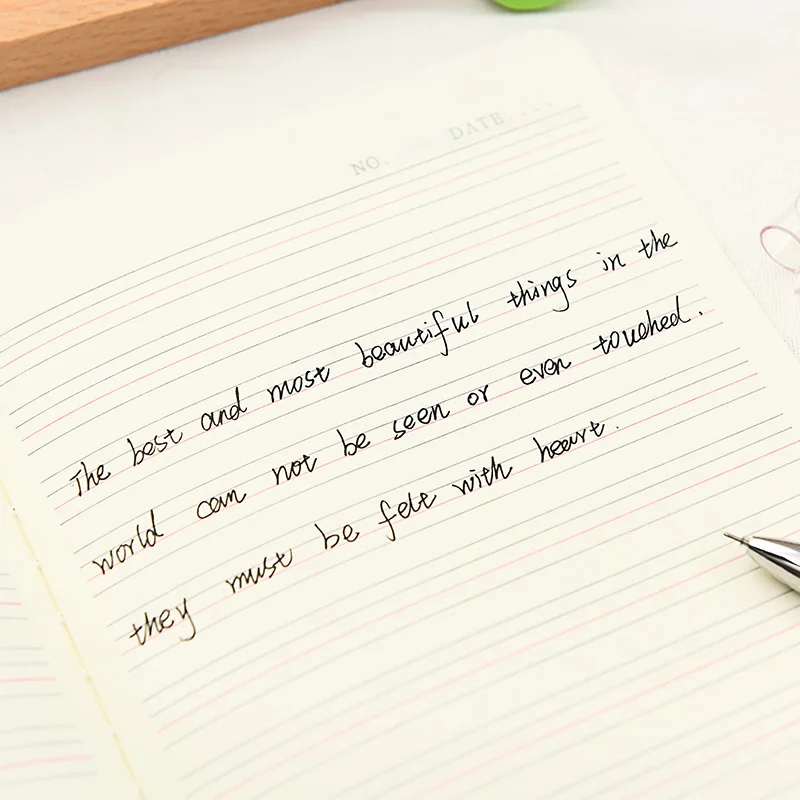 NO. DATE....
The best and most beautiful things in the
world can not be seen or even touched.
they must be felt with heart.